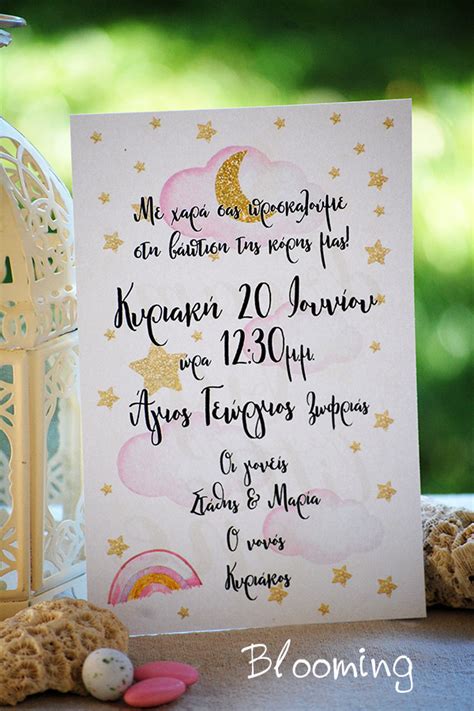 Με χαρά σας προσκαλούμε
στη βάπτιση της κόρης μας!
Κυριακή 20 Ιουνίου
ώρα 12:30μ.μ.
Άγιος Γεώργιος Ζωφριάς
Οι γονείς
Στάθης & Μαρία
Ο νονός
Κυριάκος
Blooming